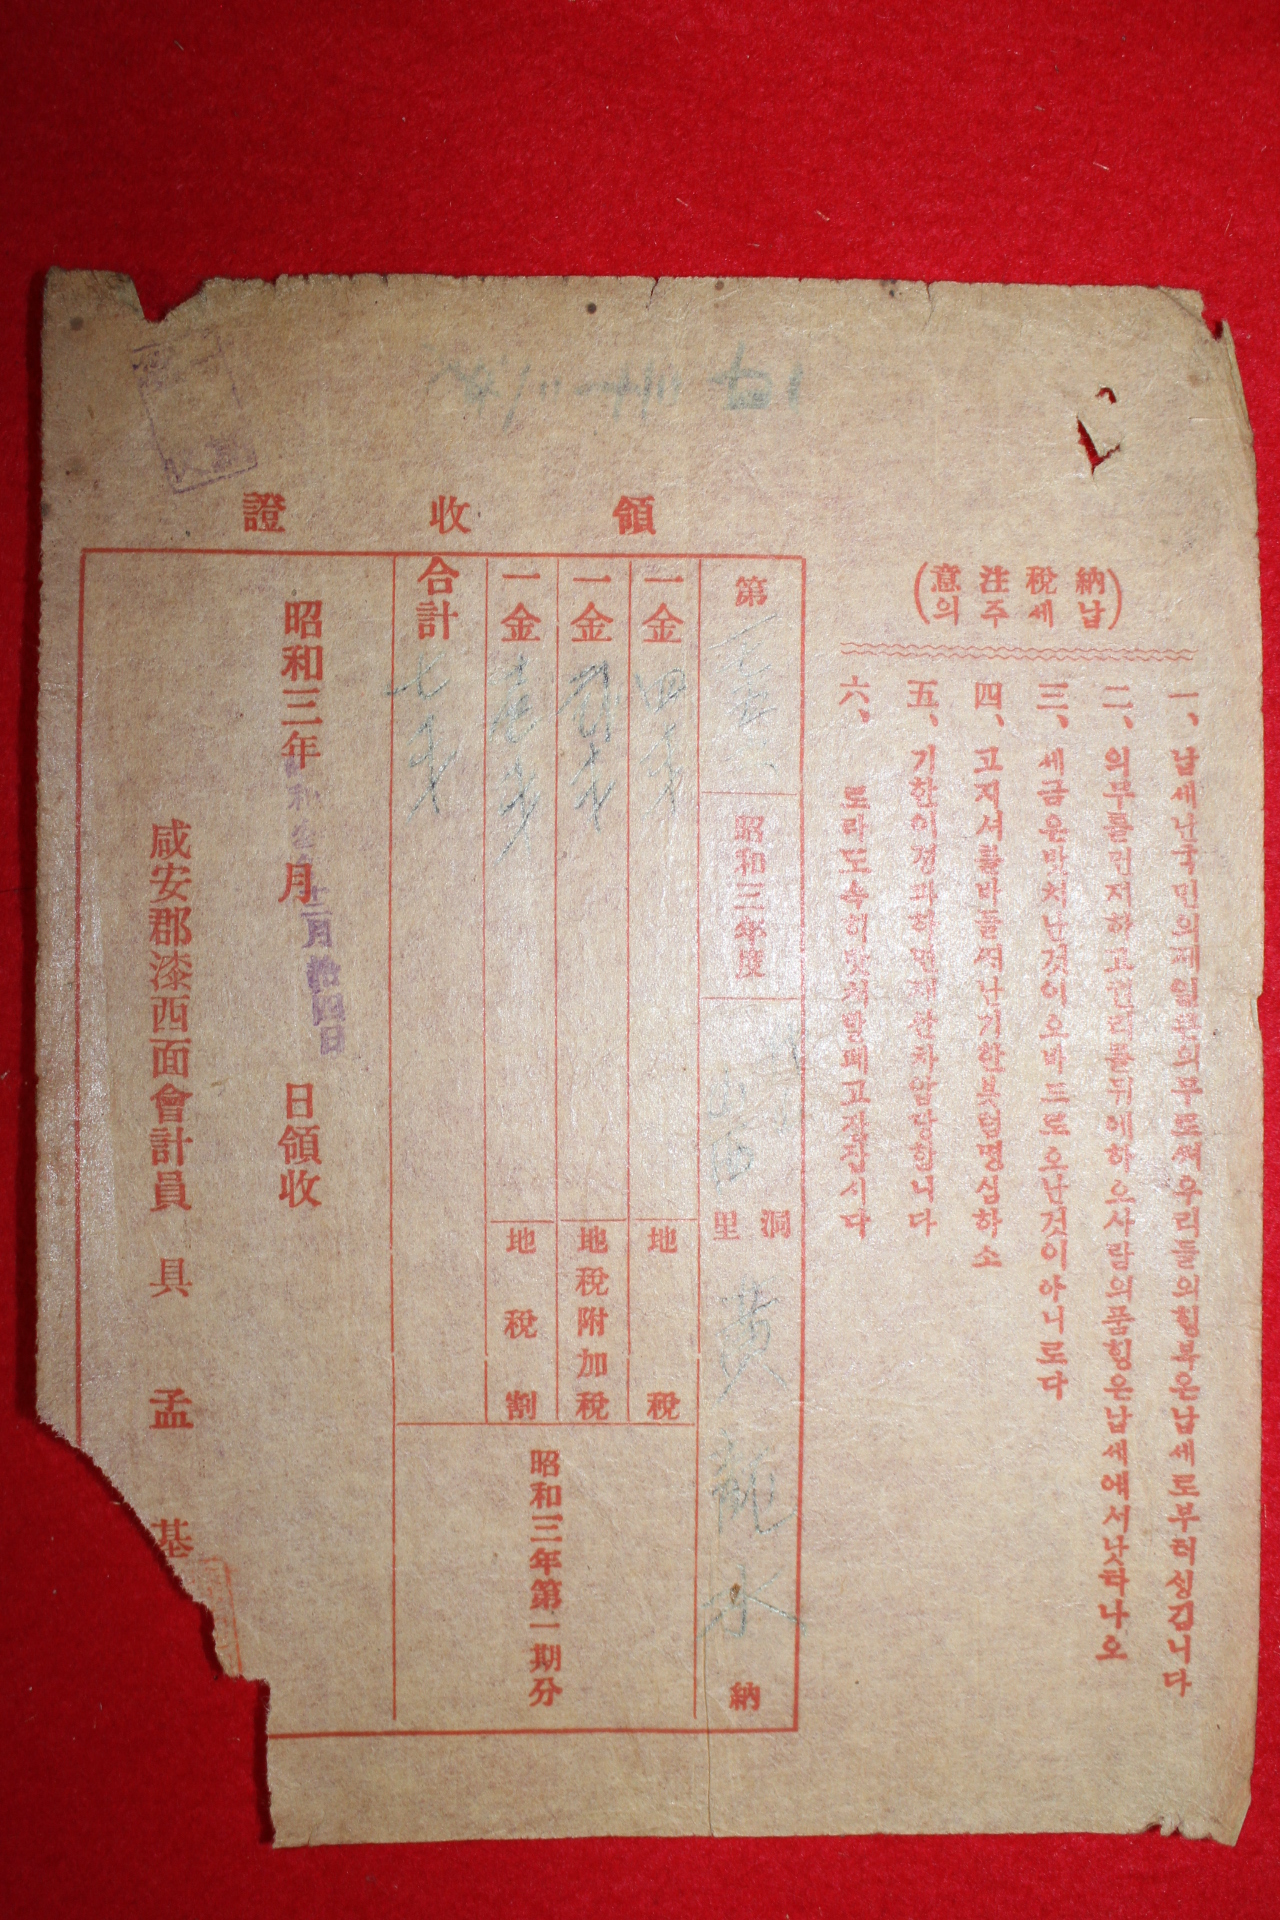 領收證
納稅注意
납세주의
一、납세난국민의제일큰의무로써우리들의힝부은납세로부허싱깁니다
二、의무를먼저하고권리를뒤에하으사람의품힝은납세에서낫타나오
三、세금은밧처난것이오바드로오난것이아니로다
四、고지서를바들써난기한붓텀명심하소
五、기한이경과하면재산차압당합니다
六、로라도속히밧처할때고자집시다
第 昭和三年度 洞里 黄龍水 納
一金四戋 地稅
一金貳戋 地稅附加稅
一金壹戋 地稅割
合計 七戋
昭和三年第一期分
昭和三年 月 日領收
十二月拾四日
咸安郡漆西面會計員 具 孟 基